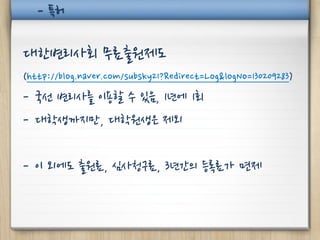 - 특허
대한변리사회 무료출원제도
(http://blog.naver.com/subsky21?Redirect=Log&logNo=130209283)
- 국선 변리사를 이용할 수 있음, 1년에 1회
- 대학생까지만, 대학원생은 제외
- 이 외에도 출원료, 심사청구료, 3년간의 등록료가 면제